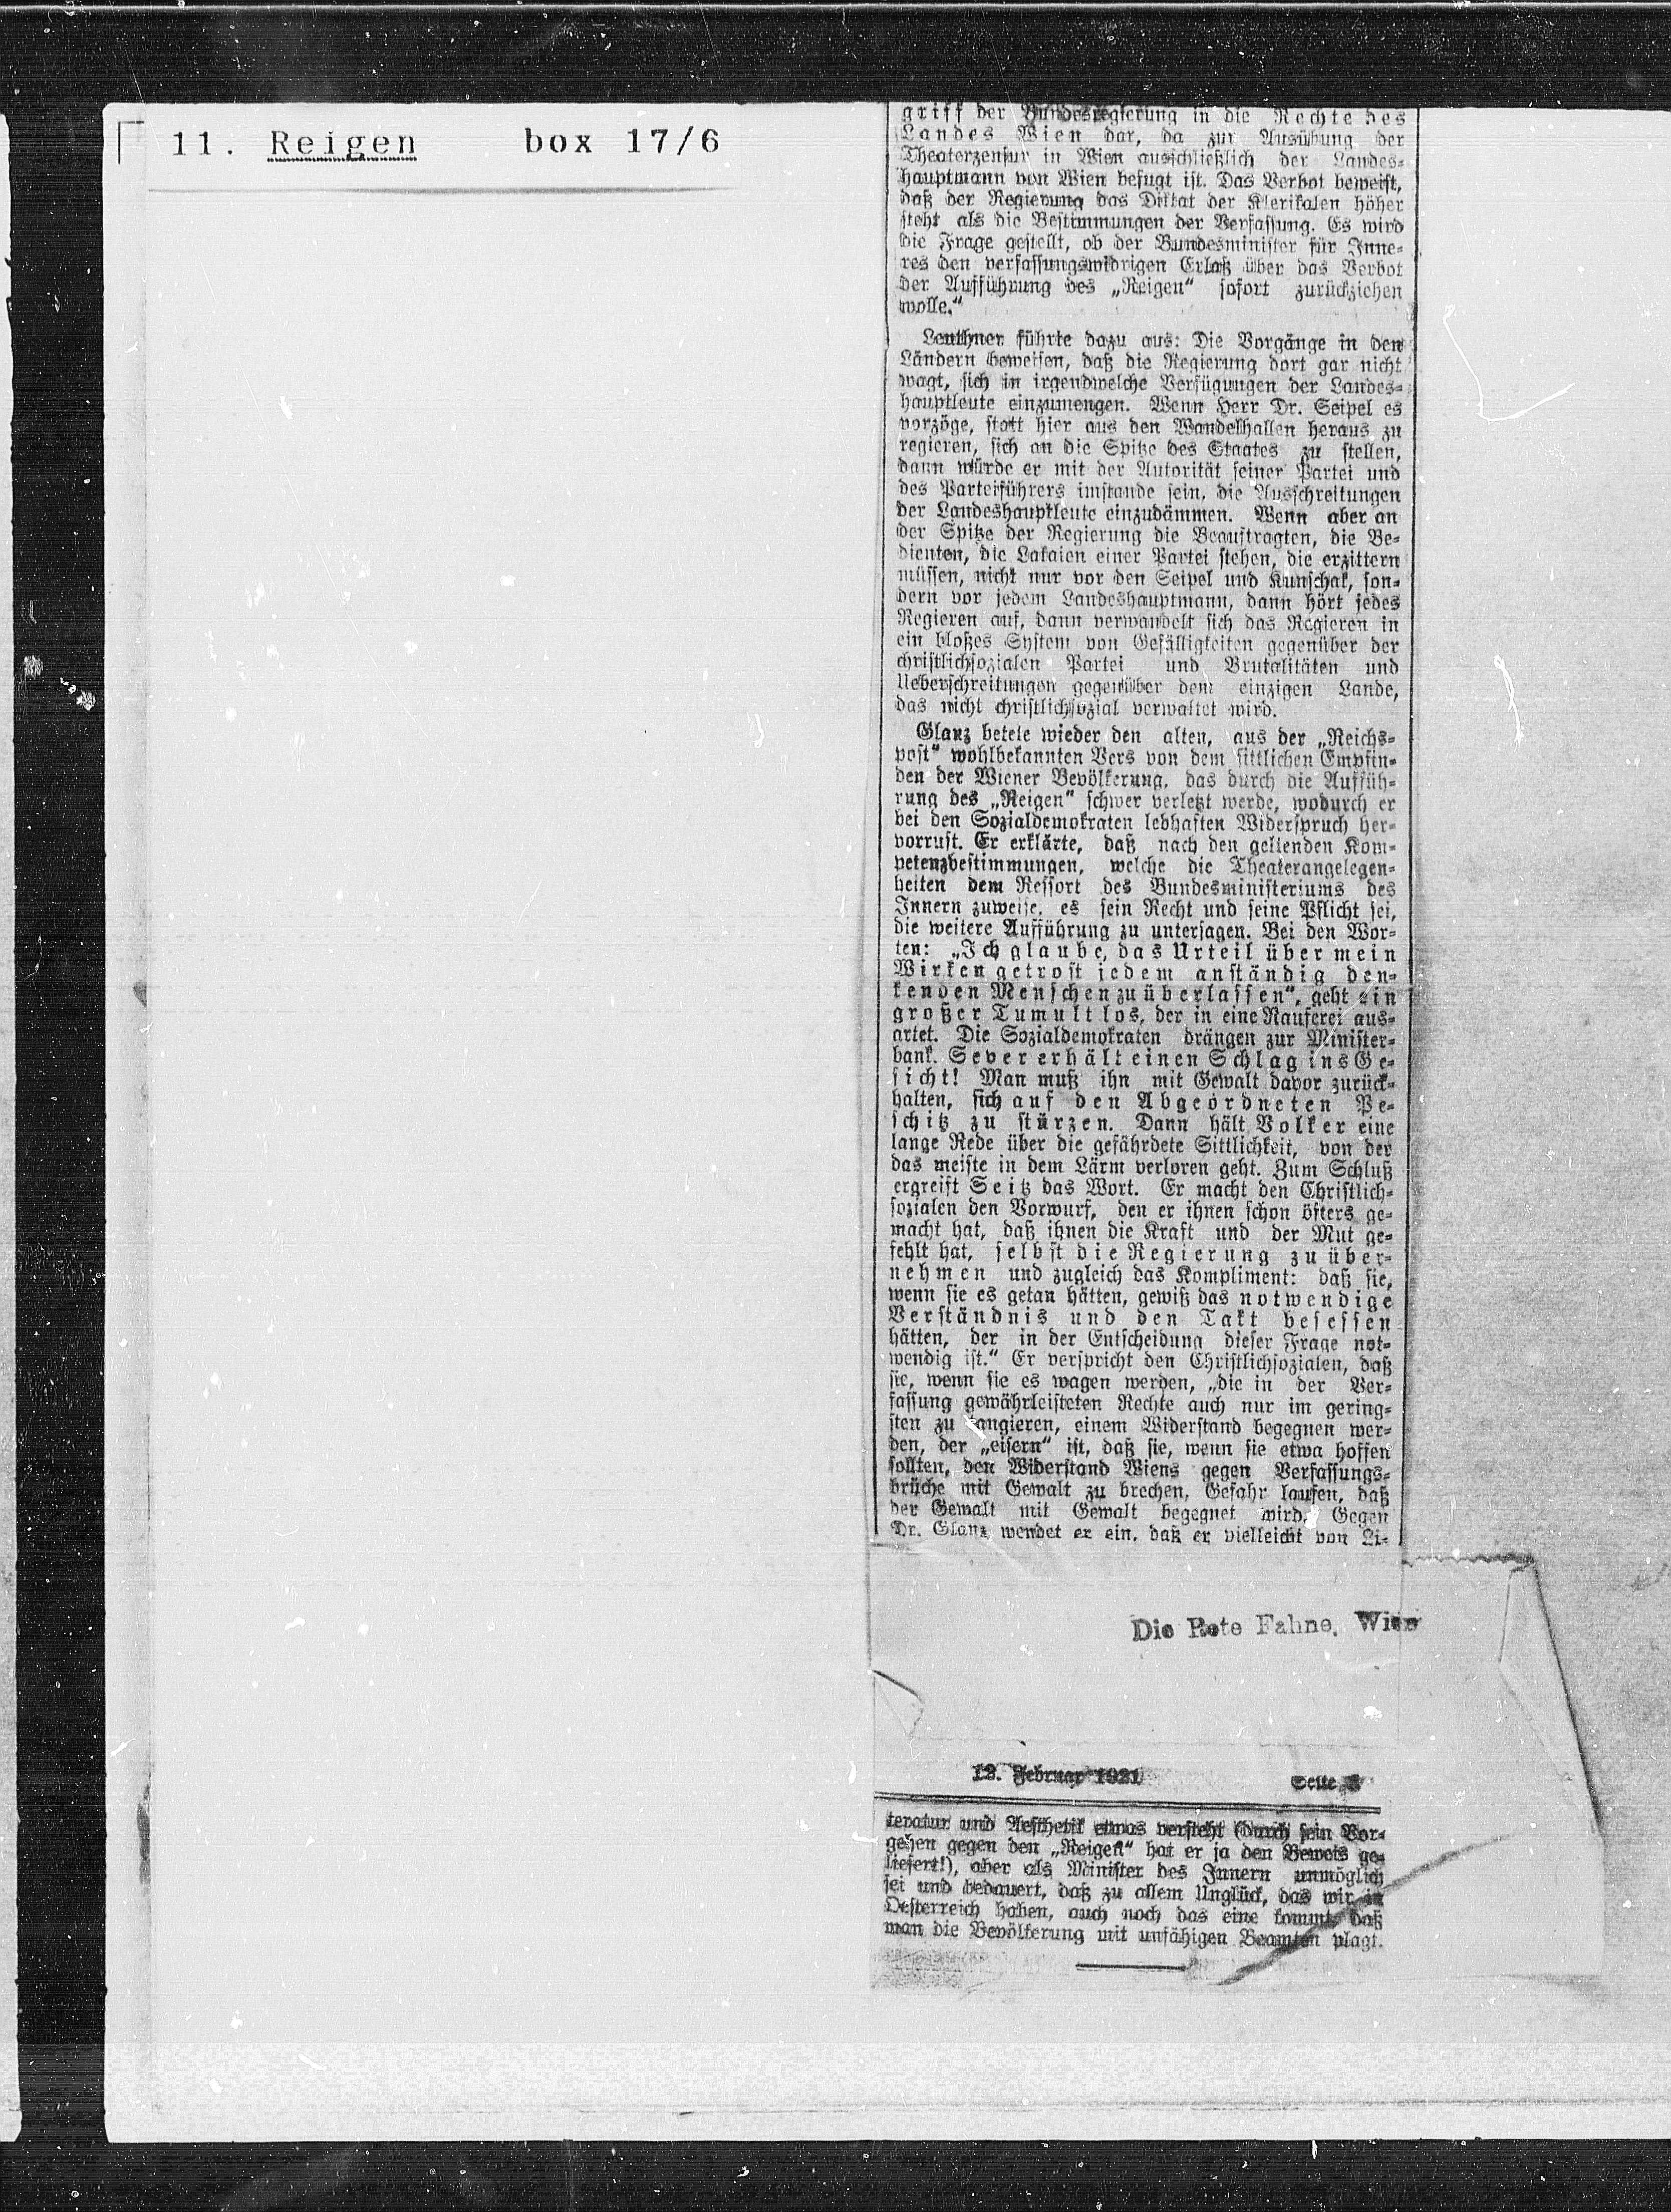 11. Reigen box 17/6
griff der Bundesregierung in die Rechte des
Landes Wien dar, da zur Ausübung der
Theaterzensur in Wien ausschließlich der Landes-
hauptmann von Wien befugt ist. Das Verbot beweist,
daß der Regierung das Diktat der Klerikalen höher
steht als die Bestimmungen der Verfassung. Es wird
die Frage gestellt, ob der Bundesminister für Inne-
res den verfassungswidrigen Erlaß über das Verbot
der Aufführung des „Reigen“ sofort zurückziehen
wolle.“
Leuthner führte dazu aus: Die Vorgänge in den
Ländern beweisen, daß die Regierung dort gar nicht
wagt, sich in irgendwelche Verfügungen der Landes-
hauptleute einzumengen. Wenn Herr Dr. Seipel es
vorzöge, statt hier aus den Wandelhallen heraus zu
regieren, sich an die Spitze des Staates zu stellen,
dann würde er mit der Autorität seiner Partei und
des Parteiführers imstande sein, die Ausschreitungen
der Landeshauptleute einzudämmen. Wenn aber an
der Spitze der Regierung die Beauftragten, die Be-
dienten, die Lakaien einer Partei stehen, die erzittern
müssen, nicht nur vor den Seipel und Kunschak, son-
dern vor jedem Landeshauptmann, dann hört jedes
Regieren auf, dann verwandelt sich das Regieren in
ein bloßes System von Gefälligkeiten gegenüber der
christlichsozialen Partei und Brutalitäten und
Ueberschreitungen gegenüber dem einzigen Lande,
das nicht christlichsozial verwaltet wird.
Glanz betete wieder den alten, aus der „Reichs-
post“ wohlbekannten Vers von dem sittlichen Empfin-
den der Wiener Bevölkerung, das durch die Auffüh-
rung des „Reigen“ schwer verletzt werde, wodurch er
bei den Sozialdemokraten lebhaften Widerspruch her-
vorruft. Er erklärte, daß nach den geltenden Kom-
petenzbestimmungen, welche die Theaterangelegen-
heiten dem Ressort des Bundesministeriums des
Innern zuweise, es sein Recht und seine Pflicht sei,
die weitere Aufführung zu untersagen. Bei den Wor-
ten: „Ich glaube, das Urteil über mein
Wirken getrost jedem anständig den-
kenden Menschen zu überlassen“, geht ein
großer Tumult los, der in eine Rauferei aus-
artet. Die Sozialdemokraten drängen zur Minister-
bank. Sever erhält einen Schlag ins Ge-
sicht! Man muß ihn mit Gewalt davor zurück-
halten, sich auf den Abgeordneten Pe-
schitz zu stürzen. Dann hält Volker eine
lange Rede über die gefährdete Sittlichkeit, von der
das meiste in dem Lärm verloren geht. Zum Schluß
ergreift Seitz das Wort. Er macht den Christlich-
sozialen den Vorwurf, den er ihnen schon öfters ge-
macht hat, daß ihnen die Kraft und der Mut ge-
fehlt hat, selbst die Regierung zu über-
nehmen und zugleich das Kompliment: daß sie,
wenn sie es getan hätten, gewiß das notwendige
Verständnis und den Takt besessen
hätten, der in der Entscheidung dieser Frage not-
wendig ist.“ Er verspricht den Christlichsozialen, daß
sie, wenn sie es wagen werden, „die in der Ver-
fassung gewährleisteten Rechte auch nur im gering-
sten zu tangieren, einem Widerstand begegnen wer-
den, der „eisern“ ist, daß sie, wenn sie etwa hoffen
sollten, den Widerstand Wiens gegen Verfassungs-
brüche mit Gewalt zu brechen, Gefahr laufen, daß
der Gewalt mit Gewalt begegnet wird. Gegen
Dr. Glanz wendet er ein, daß er vielleicht von Li-
Die Rote Fahne, Wien
12. Februar 1921 Seite
teratur und Aesthetik etwas versteht (durch sein Vor-
gehen gegen den „Reigen“ hat er ja den Beweis ge-
liefert!), aber als Minister des Innern unmöglich
sei und bedauert, daß zu allem Unglück, das wir in
Oesterreich haben, auch noch das eine kommt, daß
man die Bevölkerung mit unfähigen Beamten plagt.